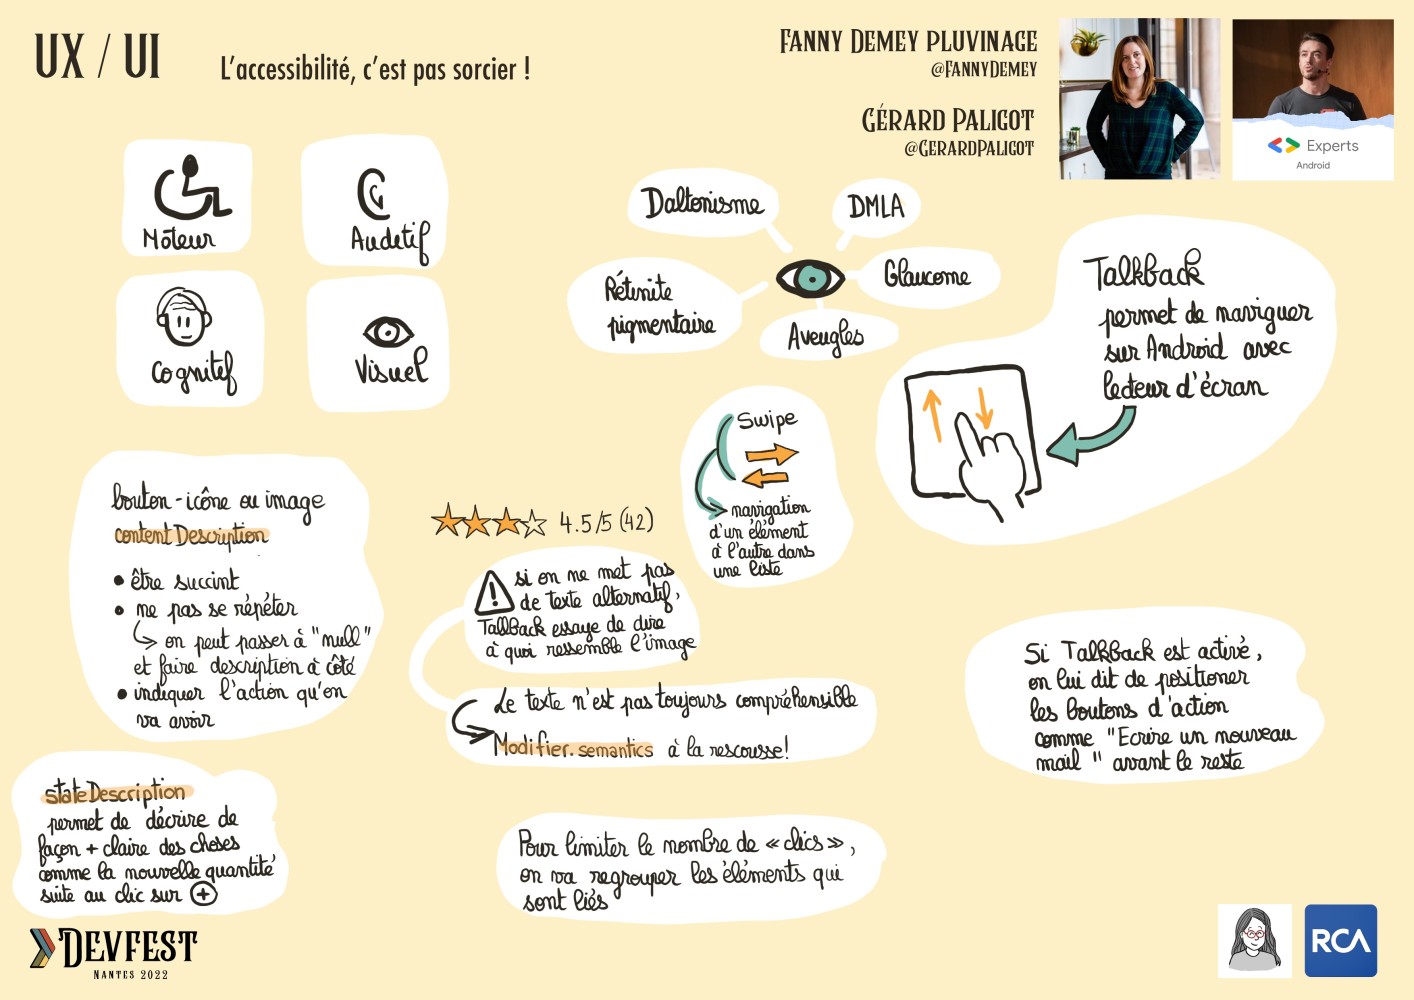 UX / UI
L'accessibilité, c'est pas sorcier !
Fanny Demey Pluvinage
@FannyDemey
Gérard Paligot
@GerardPaligot
Experts
Android
Moteur
Auditif
Cognitif
Visuel
Daltonisme
DMLA
Glaucome
Aveugles
Rétinite
pigmentaire
Talkback
permet de naviguer
sur Android avec
lecteur d'écran
Swipe
navigation
d'un élément
à l'autre dans
une liste
bouton - icône ou image
contentDescription
• être succint
• ne pas se répéter
on peut passer à "null"
et faire description à côté
• indiquer l'action qu'on
va avoir
4.5/5 (42)
si on ne met pas
de texte alternatif,
Tallback essaye de dire
à quoi ressemble l'image
Le texte n'est pas toujours compréhensible
Modifier.semantics à la rescousse!
Si Talkback est activé,
on lui dit de positioner
les boutons d'action
comme "Ecrire un nouveau
mail" avant le reste
stateDescription
permet de décrire de
façon + claire des choses
comme la nouvelle quantité
suite au clic sur +
Pour limiter le nombre de « clics »,
on va regrouper les éléments qui
sont liés
Devfest
Nantes 2022
RCA